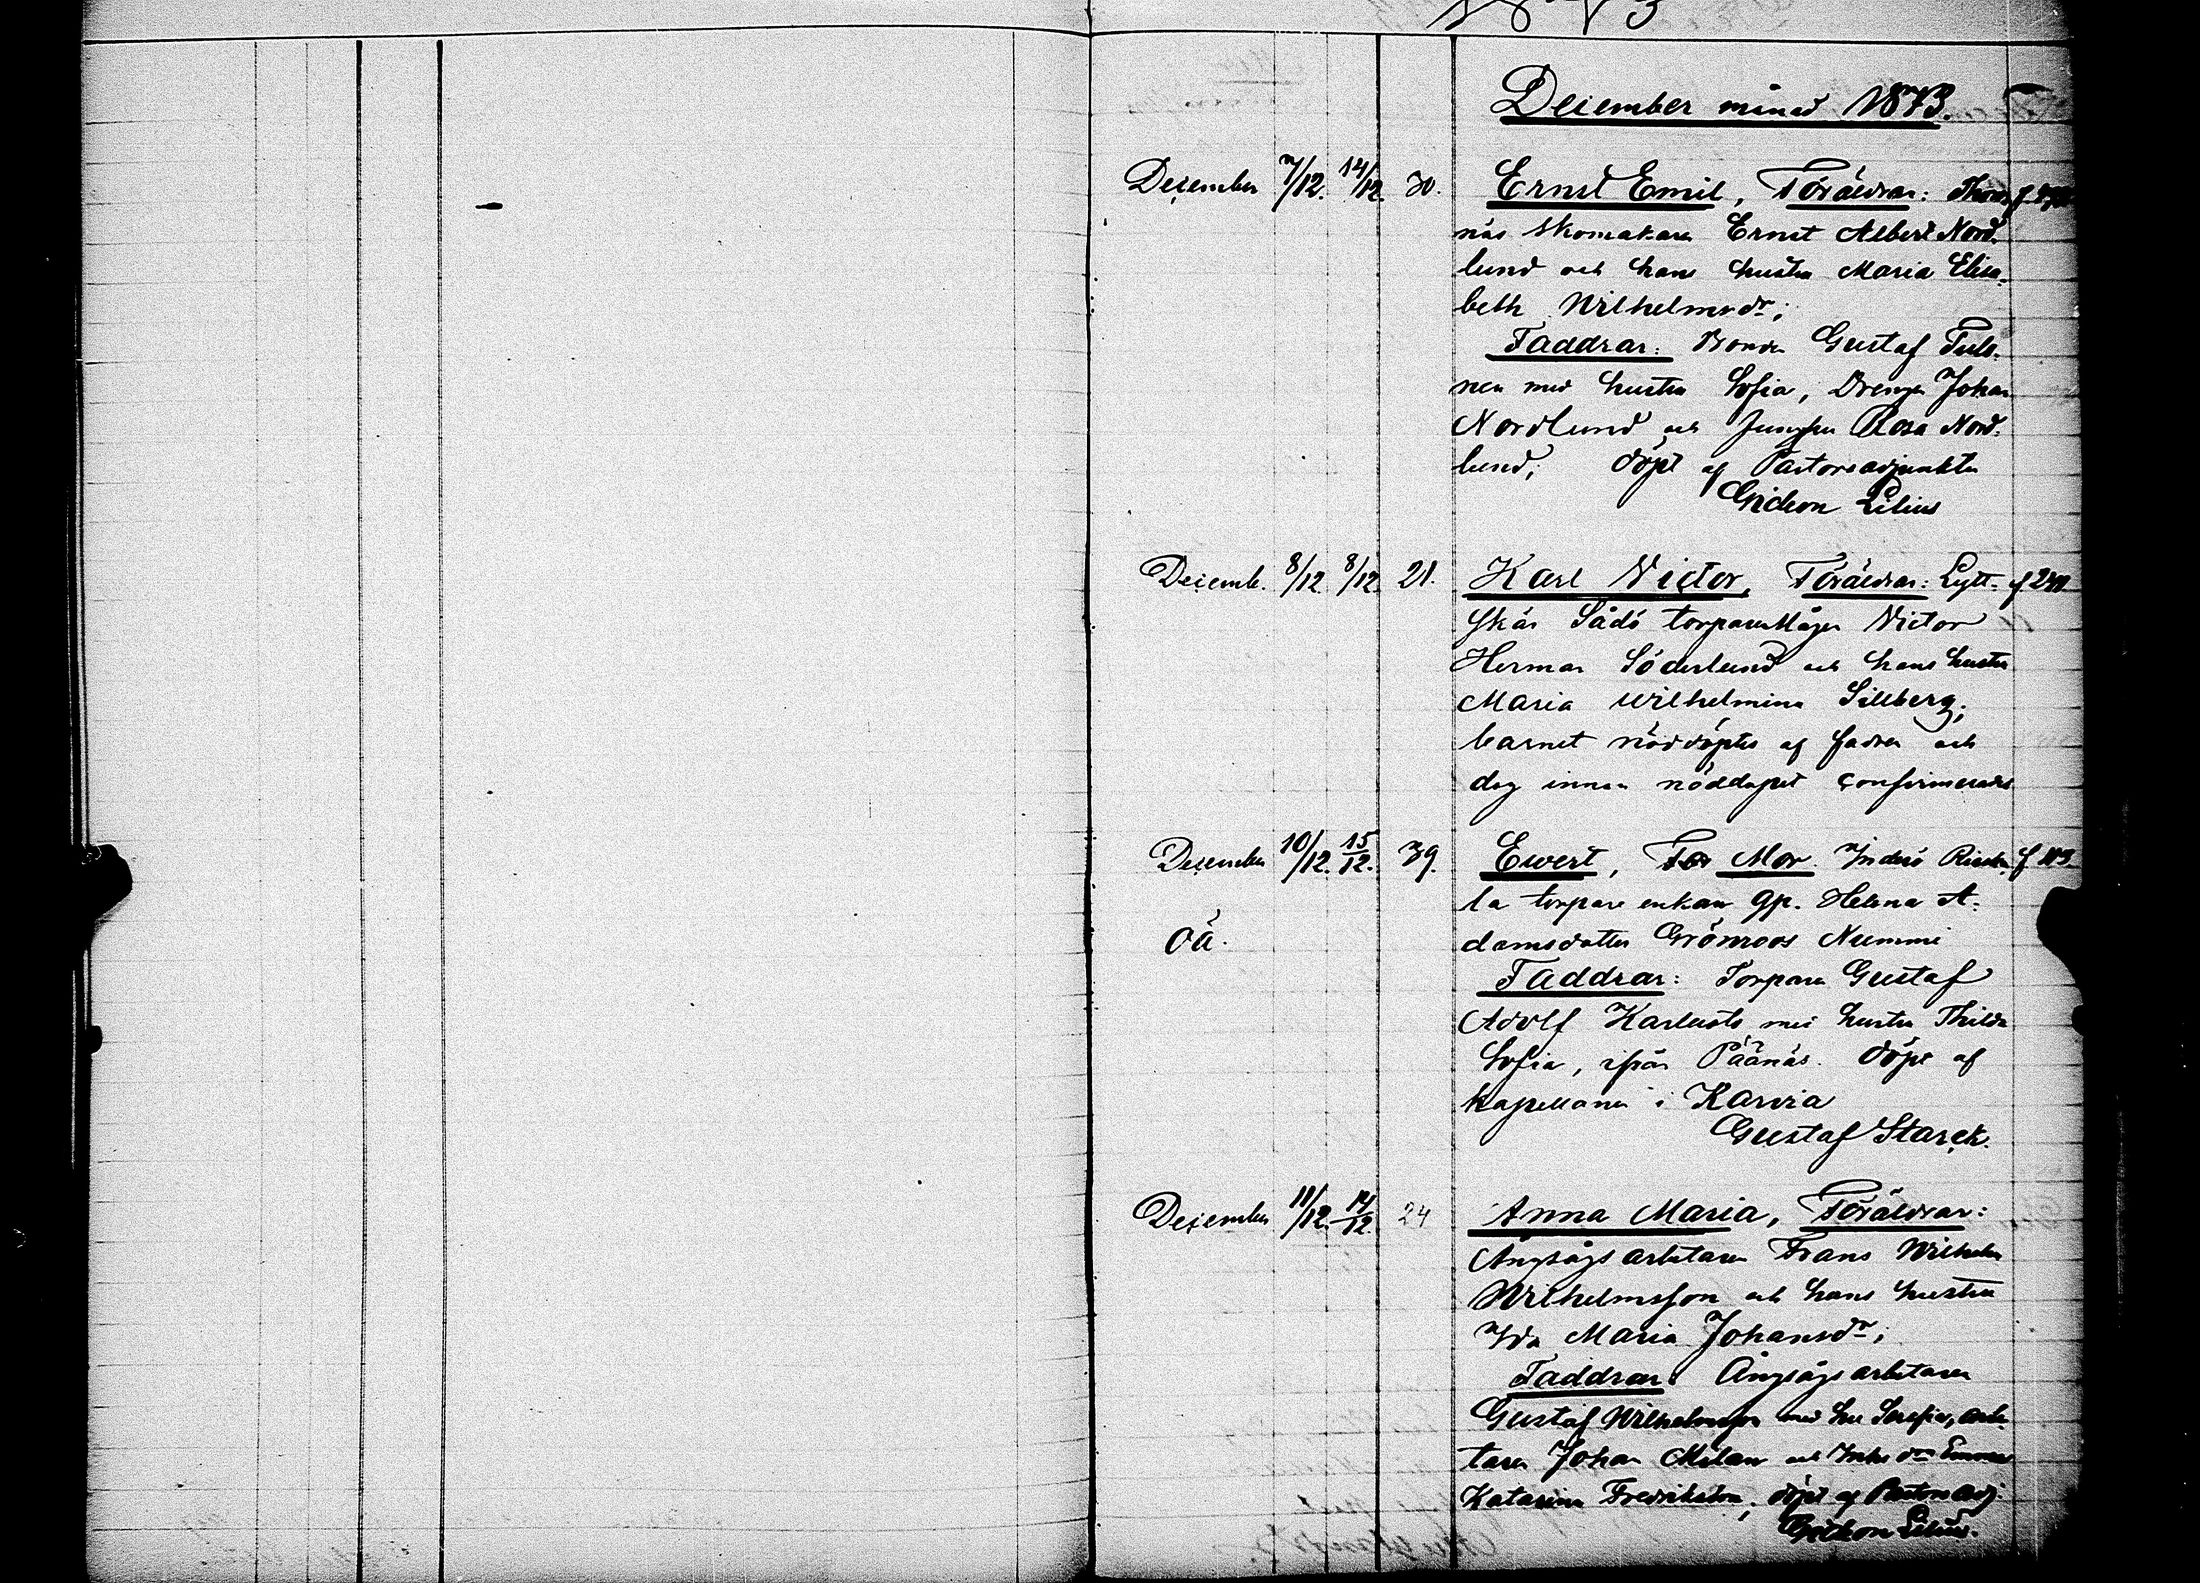 December månad 1873.
December 7/12. 14/12. 30. Ernst Emil, Föräldrar:
näs skomakaren Ernst Albert Nord-
lund och hans hustru Maria Elisa-
beth Wilhelmsdr;
Faddrar: Bonden Gustaf
nen med hustru Sofia, Drengen Johan
Nordlund och Jungfru Rosa Nord-
lund; döpt af Pastorsadjunkten
Gideon Lilius
Decemb. 8/12 8/12. 21. Karl Victor, Föräldrar: Lytt-
skär Sådö torparemågen Victor
Herman Söderlund och hans hustru
Maria Wilhelmina Sillberg;
barnet nöddöptes af fadren och
dog innan nöddopet confirmerades
December 10/12. 15/12. 39. Ewert, För Mor. Inderö
la torpare enkan gp. Helena A-
oä. damsdotter Grönroos Nummi
Faddrar: Torparen Gustaf
Adolf Karlquist med hustru Thilda
Sofia, ifrån Päänäs. Döpt af
kapellanen i Karvia
Gustaf Starck.
December 11/12. 14/12. 24 Anna Maria, Föräldrar:
Ångsågs arbetaren Frans Wilhelm
Wilhelmsson och hans hustru
Ida Maria Johansdr;
Faddrar: Ångsågs arbetaren
Gustaf Wilhelmsson med hu Serafia, arbe-
taren Johan Milan och Emma
Katarina Fredriksdr, döpt af Pastors adj
Gideon Lilius.